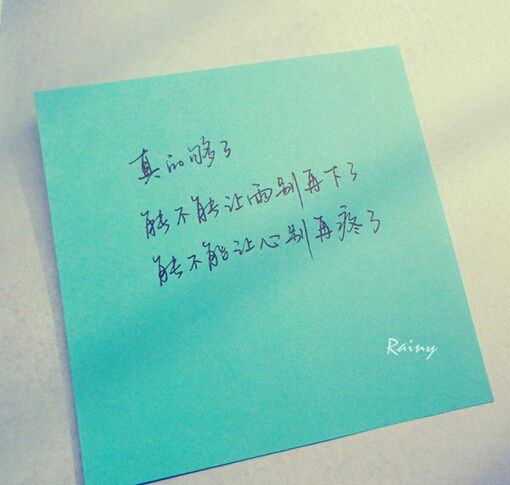 真的够了
能不能让雨别再下了
能不能让心别再疼了
Rainy